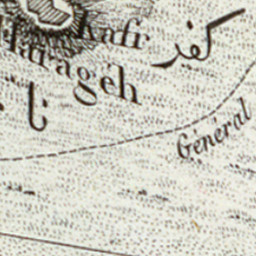 Kafr
Haragéh
كفر
Général